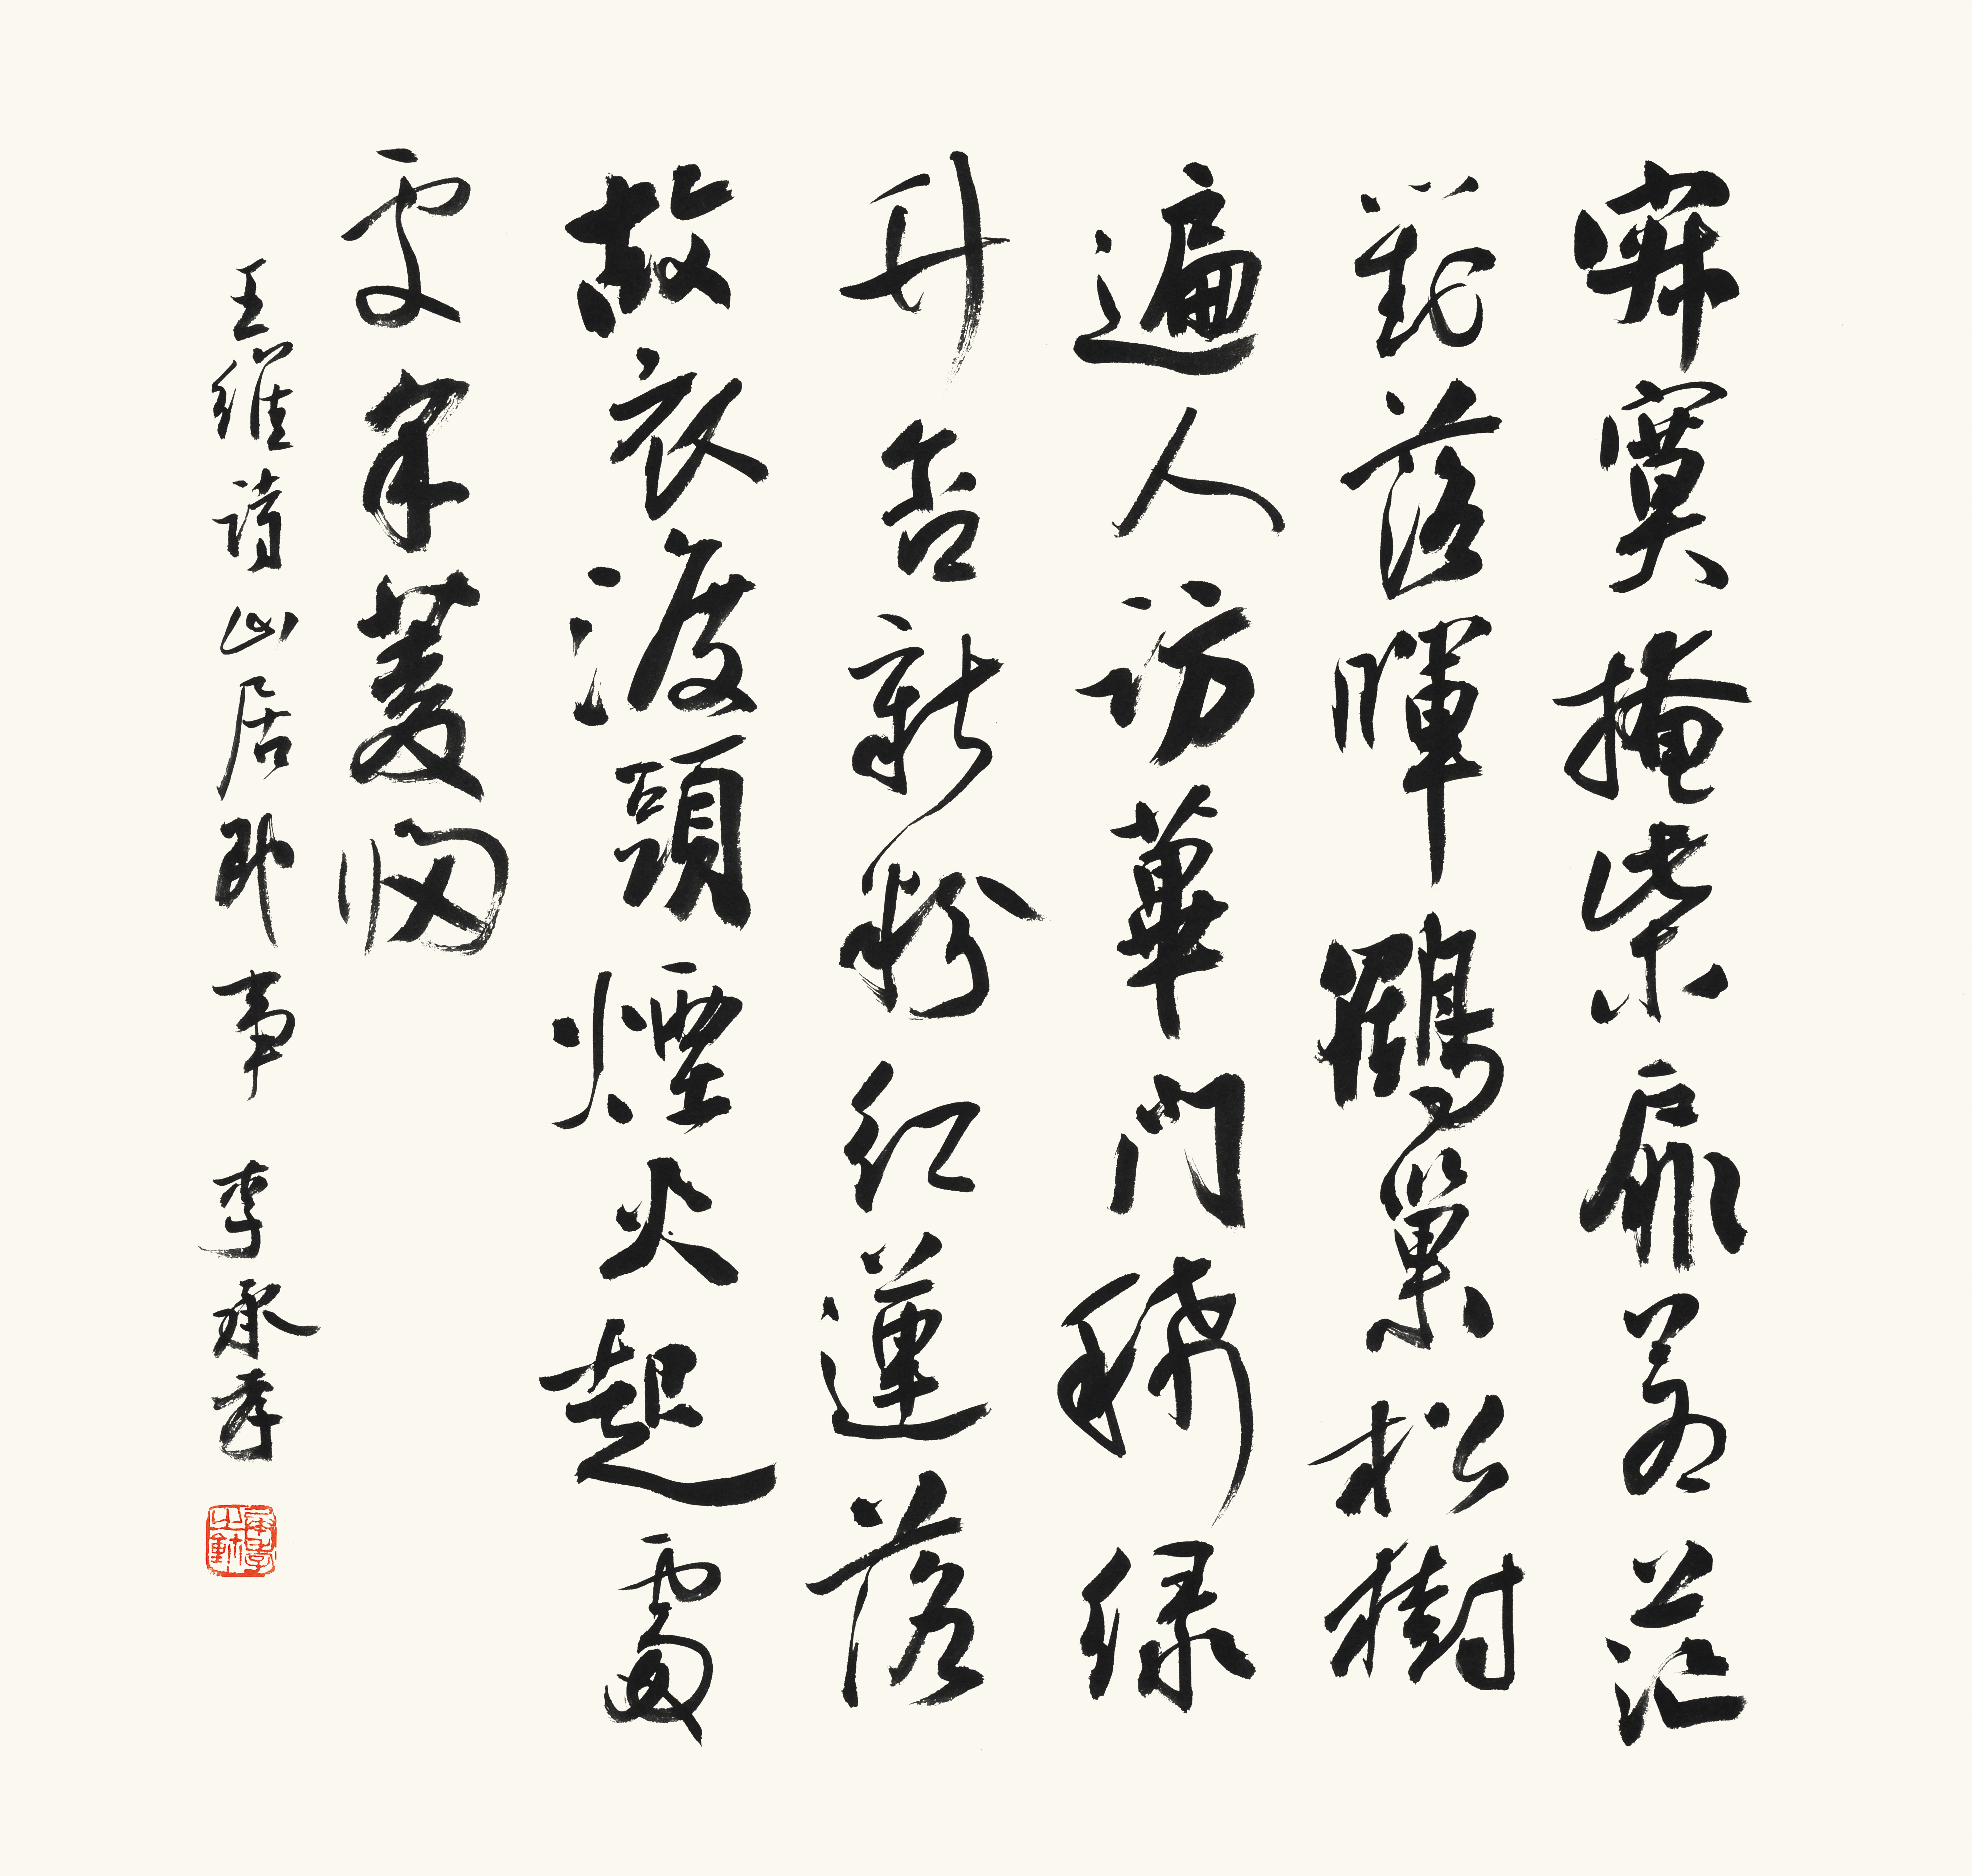 寂寞掩柴扉蒼茫
對落暉鶴巢松樹
遍人訪蓽門稀綠
竹含新粉紅蓮落
故衣渡頭煙火起處
處采菱歸
王維詩山居即事 李